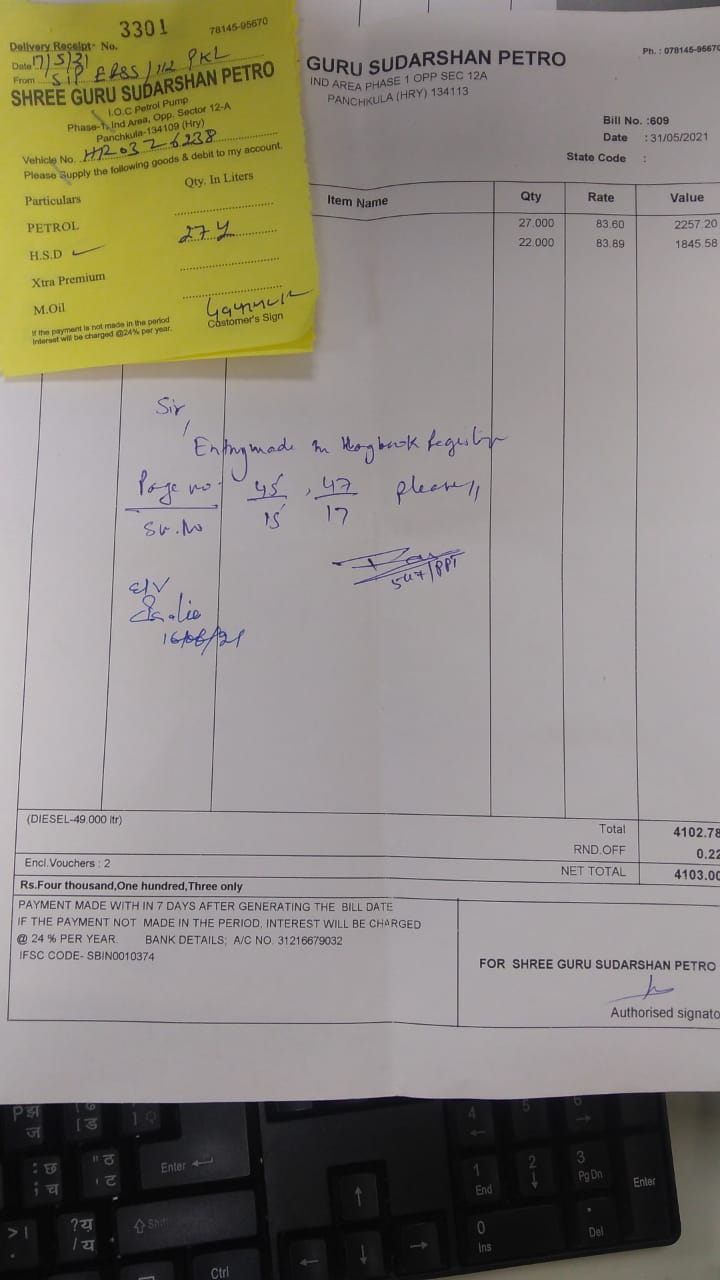 3301
78145-95670
Delivery Receipt- No.
Date 17/5/21
From S/P ERSS/112 PKL
SHREE GURU SUDARSHAN PETRO
I.O.C Petrol Pump
Phase-1, Ind Area, Opp. Sector 12-A
Panchkula-134109 (Hry)
Vehicle No. HR03Z6238
Please Supply the following goods & debit to my account.
Particulars Qty. In Liters
PETROL
H.S.D 27
Xtra Premium
M.Oil
Customer's Sign
If the payment is not made in the period
Interest will be charged @24% per year.
Ph. : 078145-95670
GURU SUDARSHAN PETRO
IND AREA PHASE 1 OPP SEC 12A
PANCHKULA (HRY) 134113
Bill No. :609
Date : 31/05/2021
State Code :
Item Name Qty Rate Value
27.000 83.60 2257.20
22.000 83.89 1845.58
Sir,
Entry made in logbook Register
Page no. 45, 47 please
Sr. No 15 17
547/PPT
16/06/21
(DIESEL-49.000 ltr)
Total 4102.78
RND.OFF 0.22
Encl.Vouchers : 2
NET TOTAL 4103.00
Rs.Four thousand,One hundred,Three only
PAYMENT MADE WITH IN 7 DAYS AFTER GENERATING THE BILL DATE
IF THE PAYMENT NOT MADE IN THE PERIOD, INTEREST WILL BE CHARGED
@ 24 % PER YEAR. BANK DETAILS; A/C NO. 31216679032
IFSC CODE- SBIN0010374
FOR SHREE GURU SUDARSHAN PETRO
Authorised signato
P झ
ज
[ ड
: छ
; च
" ठ
' ट
Enter
> |
.
? य
/ य
Shift
Ctrl
4
5
6
1
End
2
3
Pg Dn
Enter
0
Ins
.
Del